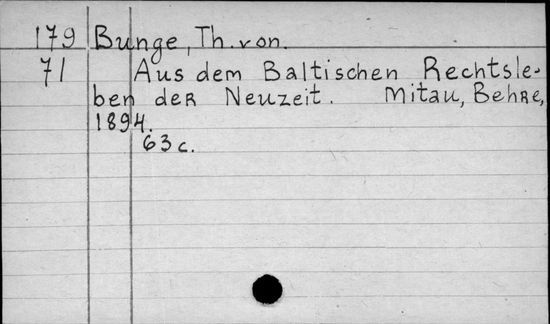 179 Bunge, Th. von.
71 Aus dem Baltischen Rechtsle-
ben der Neuzeit. Mitau, Behre,
1894.
63 c.